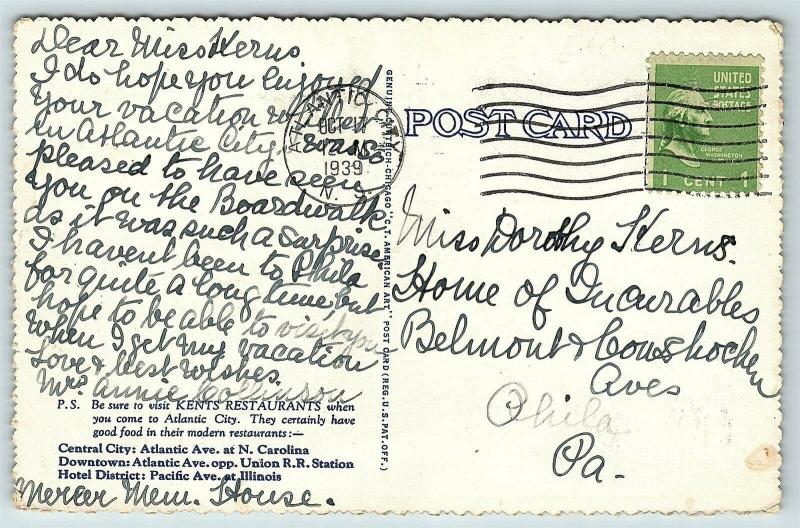 Dear Miss Kerns
I do hope you enjoyed
your vacation when
in Atlantic City I was so
pleased to have seen
you on the Boardwalk
as it was such a surprise
I havent been to Phila
for quite a long time, but
hope to be able to visit you
when I get my vacation
Love & best wishes.
Mrs Annie Collinson
P.S. Be sure to visit KENTS RESTAURANTS when
you come to Atlantic City. They certainly have
good food in their modern restaurants:—
Central City: Atlantic Ave. at N. Carolina
Downtown: Atlantic Ave. opp. Union R.R. Station
Hotel District: Pacific Ave. at Illinois
Mercer Mem. House.
GENUINE CURTEICH-CHICAGO "C.T. AMERICAN ART" POST CARD (REG. U.S. PAT. OFF.)
ATLANTIC CITY
OCT 17
1939
N.
POST CARD
UNITED
STATES
POSTAGE
GEORGE
WASHINGTON
1 CENT 1
Miss Dorothy Kerns.
Home of Incurables
Belmont & Conshohocken
Aves
Phila
Pa.